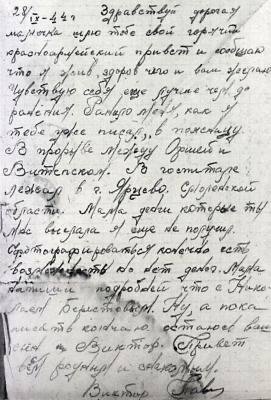 28/IX-44г. Здравствуй дорогая
мамочка шлю тебе свой горячий
красноармейский привет и сообщаю
что я жив, здоров чего и вам желаю
Чувствую себя еще лучше чем до
ранения. Ранило меня, как я
тебе уже писал, в поясницу
В прорыве между Оршей и
Витебском. В госпитале
лежал в г. Ярцево. Смоленской
области. Мама деньги которые ты
мне выслала я еще не получил.
Сфотографироваться конечно есть
возможность но нет денег. Мама
напиши подробней что с Нико-
лаем Бурстовым. Ну, а пока
писать кончаю остаюсь ваш
сын Виктор. Привет
всем родным и знакомым.
Виктор